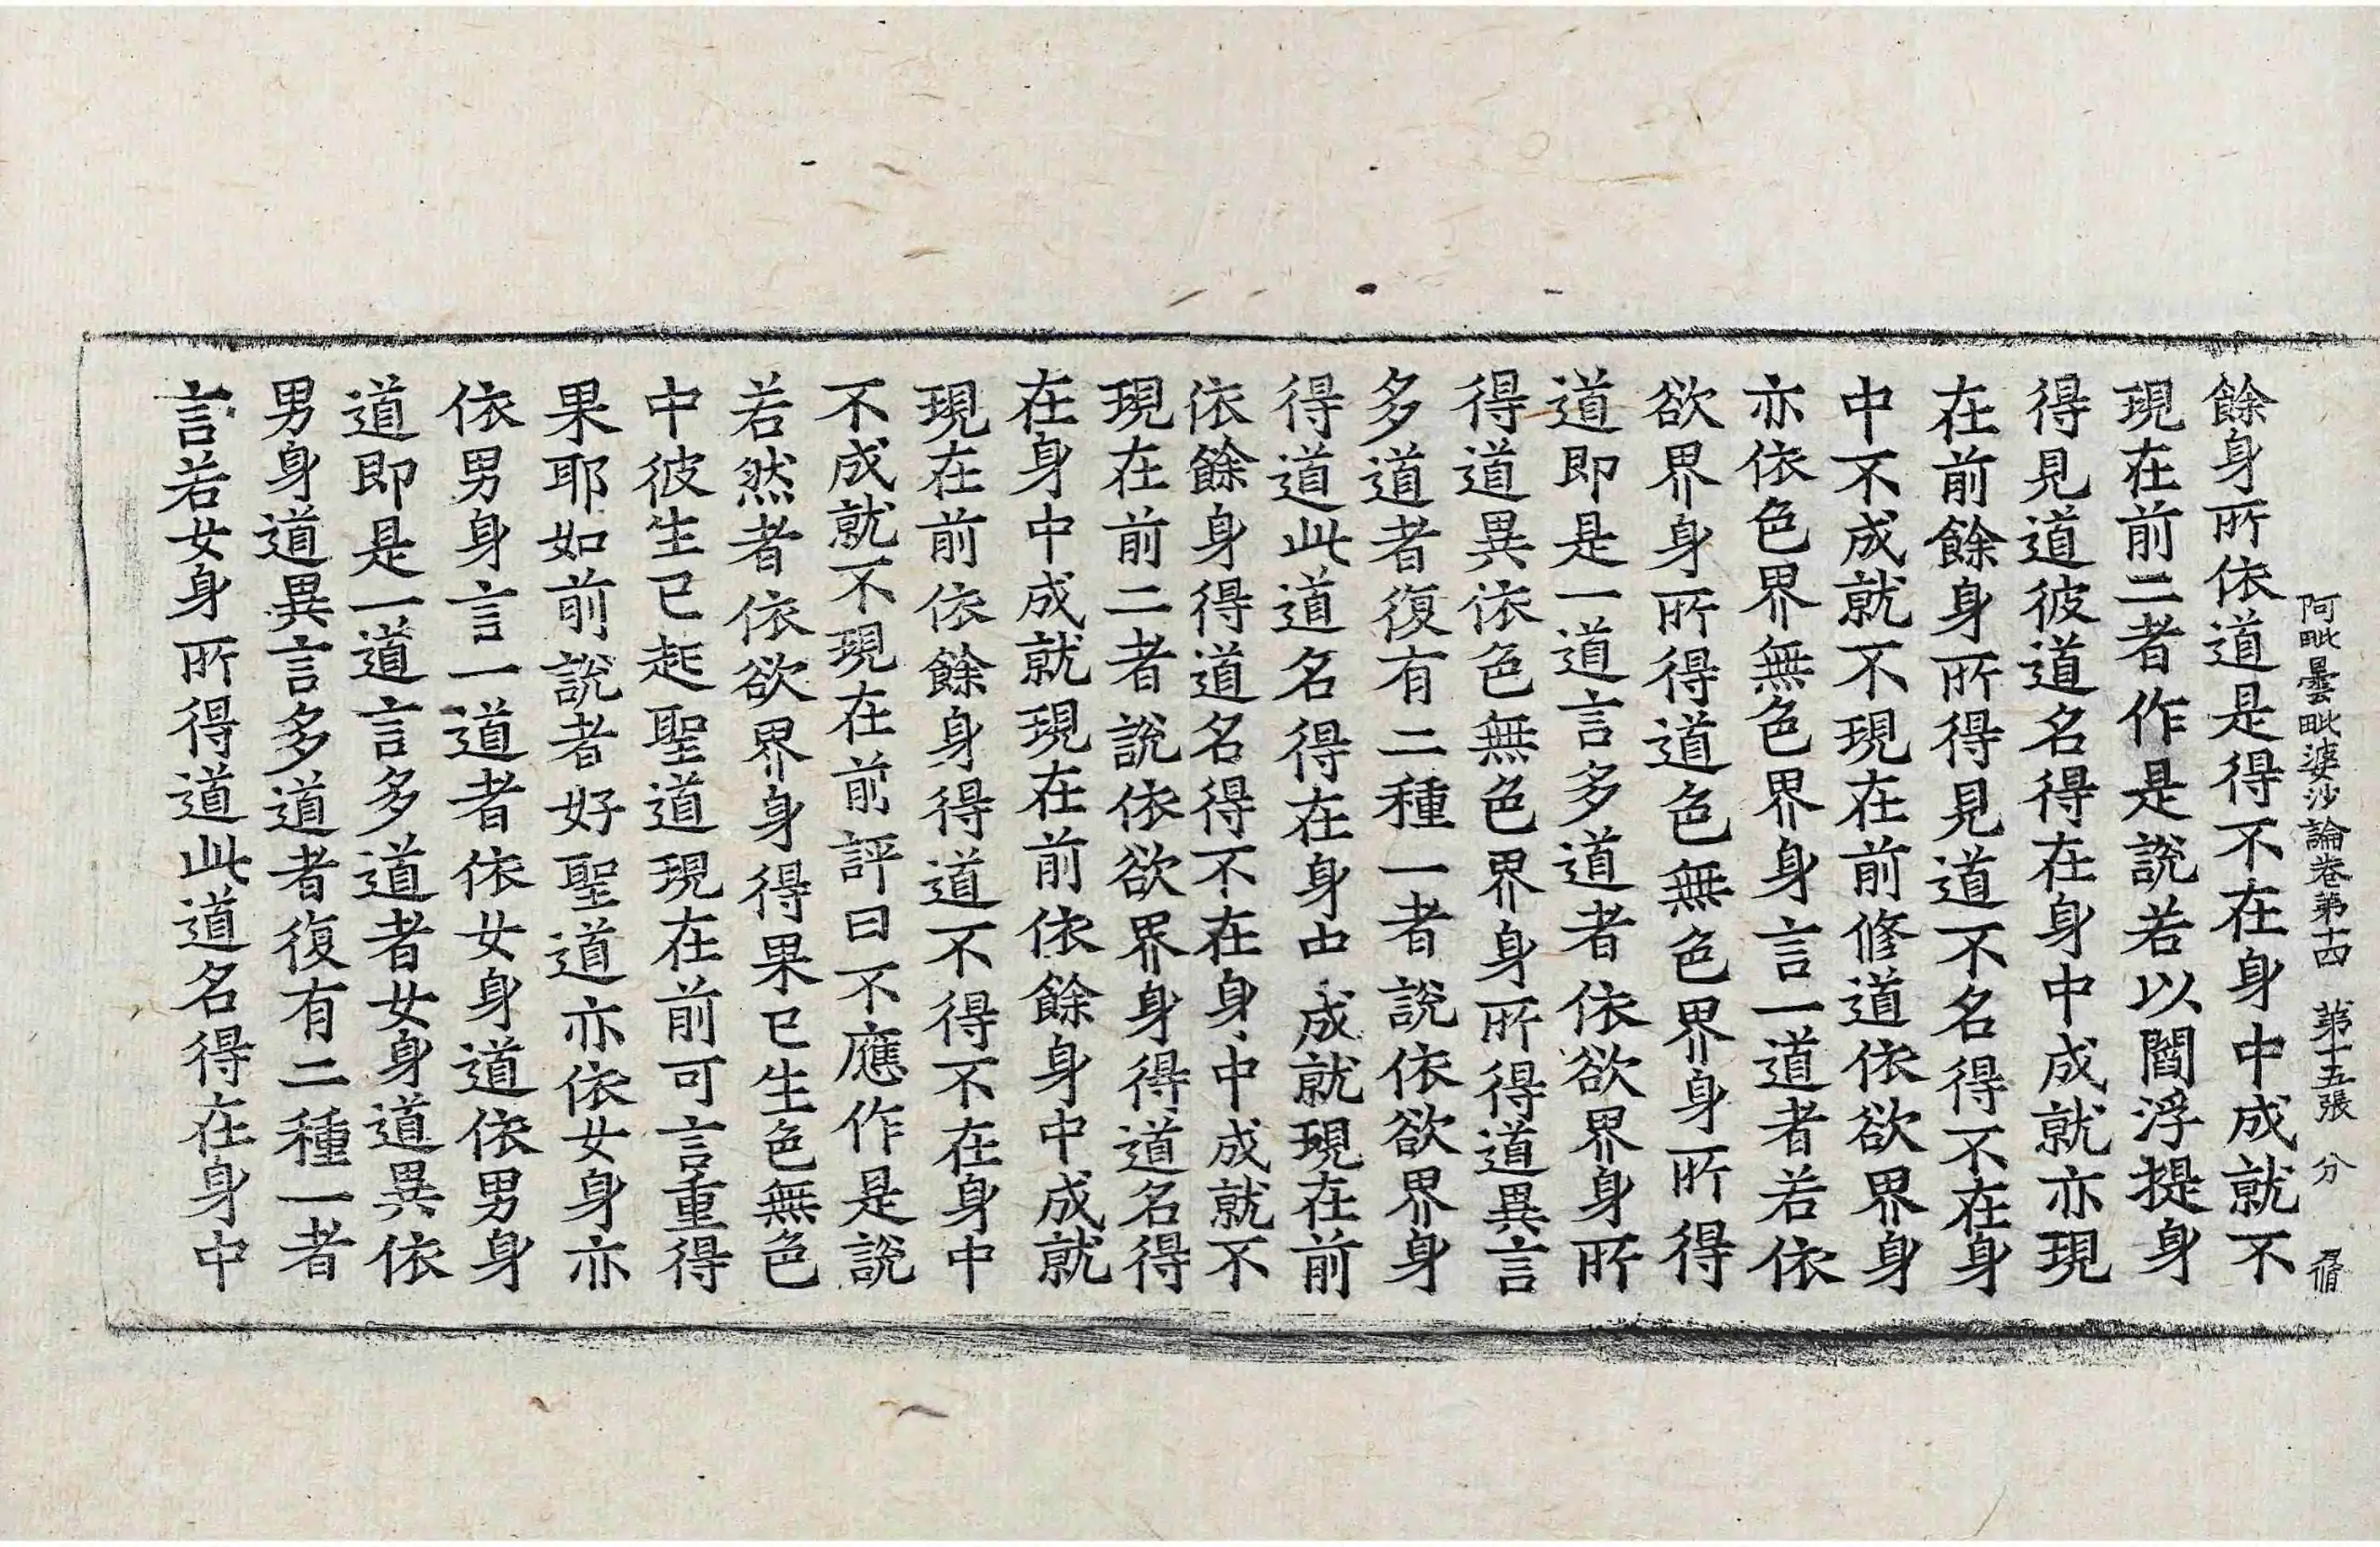 阿毗曇毗婆沙論卷第十四　第十五張　分
餘身所依道是得不在身中成就不
現在前二者作是說若以閻浮提身
得見道彼道名得在身中成就亦現
在前餘身所得見道不名得不在身
中不成就不現在前修道依欲界身
亦依色界無色界身言一道者若依
欲界身所得道色無色界身所得
道即是一道言多道者依欲界身所
得道異依色無色界身所得道異言
多道者復有二種一者說依欲界身
得道此道名得在身中成就現在前
依餘身得道名得不在身中成就不
現在前二者說依欲界身得道名得
在身中成就現在前依餘身中成就
現在前依餘身得道不得不在身中
不成就不現在前評曰不應作是說
若然者依欲界身得果已生色無色
中彼生已起聖道現在前可言重得
果耶如前說者好聖道亦依女身亦
依男身言一道者依女身道依男身
道即是一道言多道者女身道異依
男身道異言多道者復有二種一者
言若女身所得道此道名得在身中